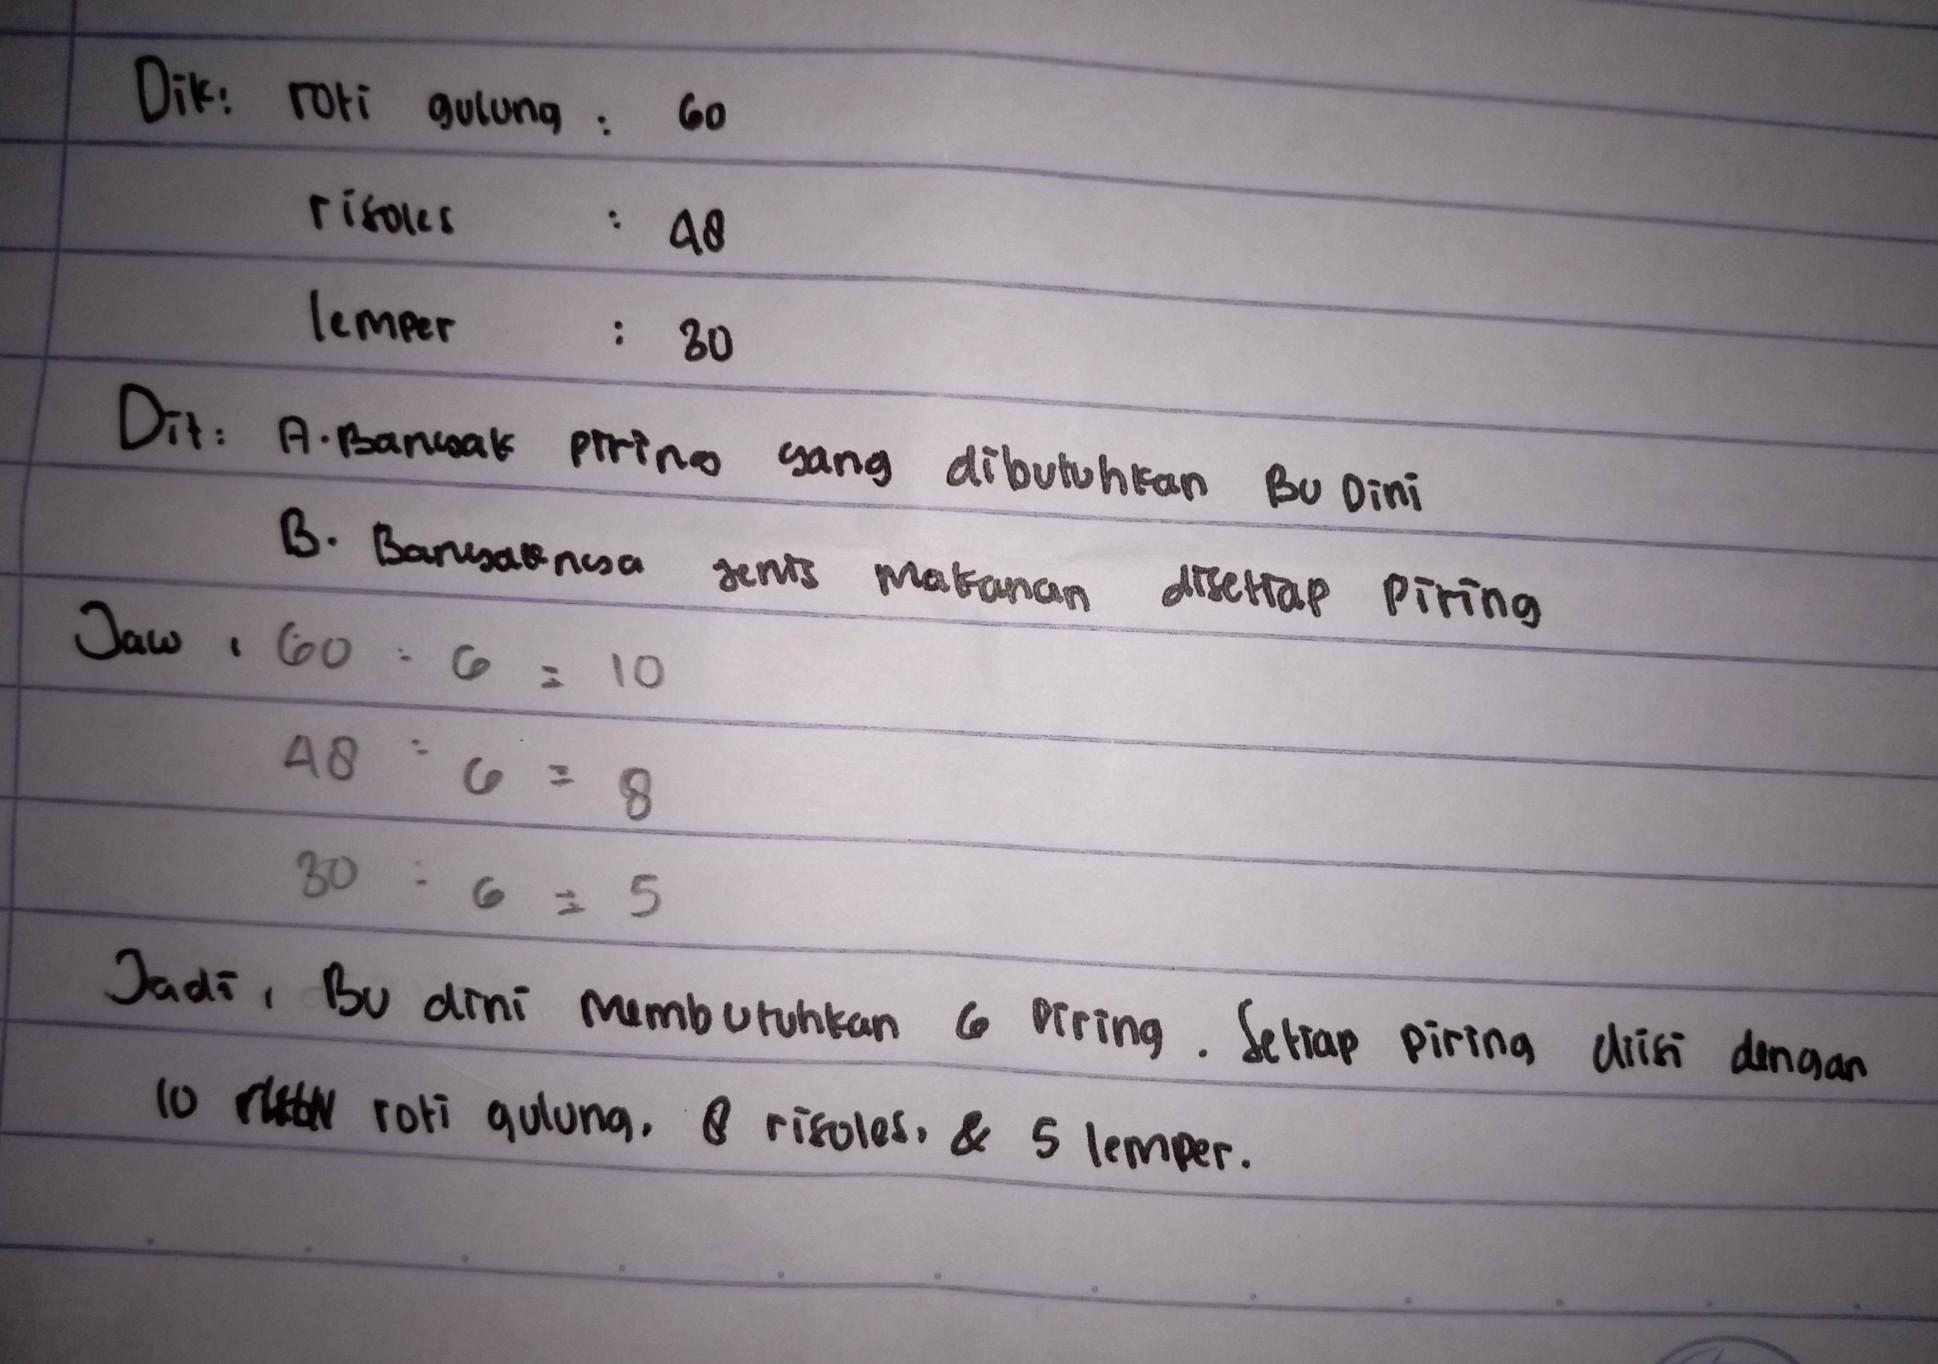 Dik: roti gulung : 60
risoles : 48
lemper : 30
Dit: A. Banyak piring yang dibutuhkan Bu Dini
B. Banyaknya jenis makanan disetiap piring
Jaw : 60 : 6 = 10
48 : 6 = 8
30 : 6 = 5
Jadi, Bu dini membutuhkan 6 piring. Setiap piring diisi dengan
10 roti gulung, 8 risoles, & 5 lemper.